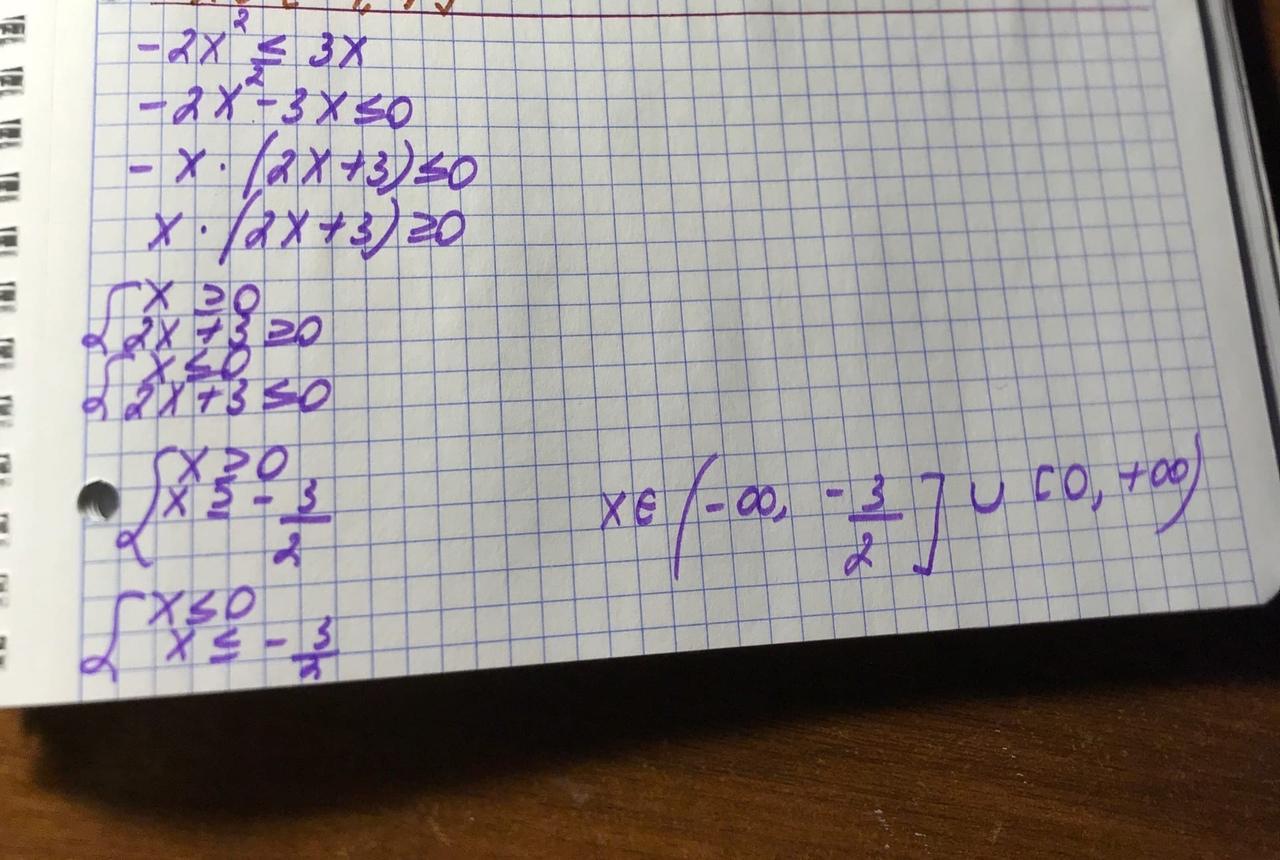 -2x² ≤ 3x
-2x² - 3x ≤ 0
- x · (2x + 3) ≤ 0
x · (2x + 3) ≥ 0
{ x ≥ 0
2x + 3 ≥ 0
{ x ≤ 0
2x + 3 ≤ 0
{ x ≥ 0
x ≥ - 3/2
x ∈ (-∞, - 3/2] ∪ [0, +∞)
{ x ≤ 0
x ≤ - 3/2